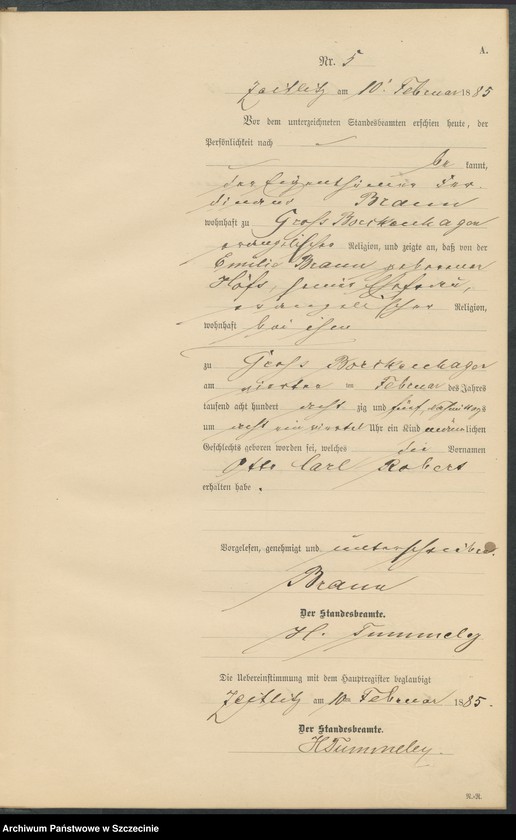 A.
Nr. 5
Zeitlitz am 10ᵗ Februar 1885
Vor dem unterzeichneten Standesbeamten erschien heute, der
Persönlichkeit nach
be kannt,
der Eigenthümer Fer-
dinand Braun
wohnhaft zu Groß Borckenhagen
evangelischer Religion, und zeigte an, daß von der
Emilie Braun geborener
Höfs, seiner Ehefrau,
evangelischer Religion,
wohnhaft bei ihm
zu Groß Borckenhagen
am vierten ten Februar des Jahres
tausend acht hundert acht zig und fünf, Vormittags
um acht ein viertel Uhr ein Kind männlichen
Geschlechts geboren worden sei, welches die Vornamen
Otto Carl Robert
erhalten habe.
Vorgelesen, genehmigt und unterschrieben.
Braun
Der Standesbeamte.
H. Tummeley
Die Uebereinstimmung mit dem Hauptregister beglaubigt
Zeitlitz am 10ten Februar 1885.
Der Standesbeamte.
H Tummeley.
Archiwum Państwowe w Szczecinie